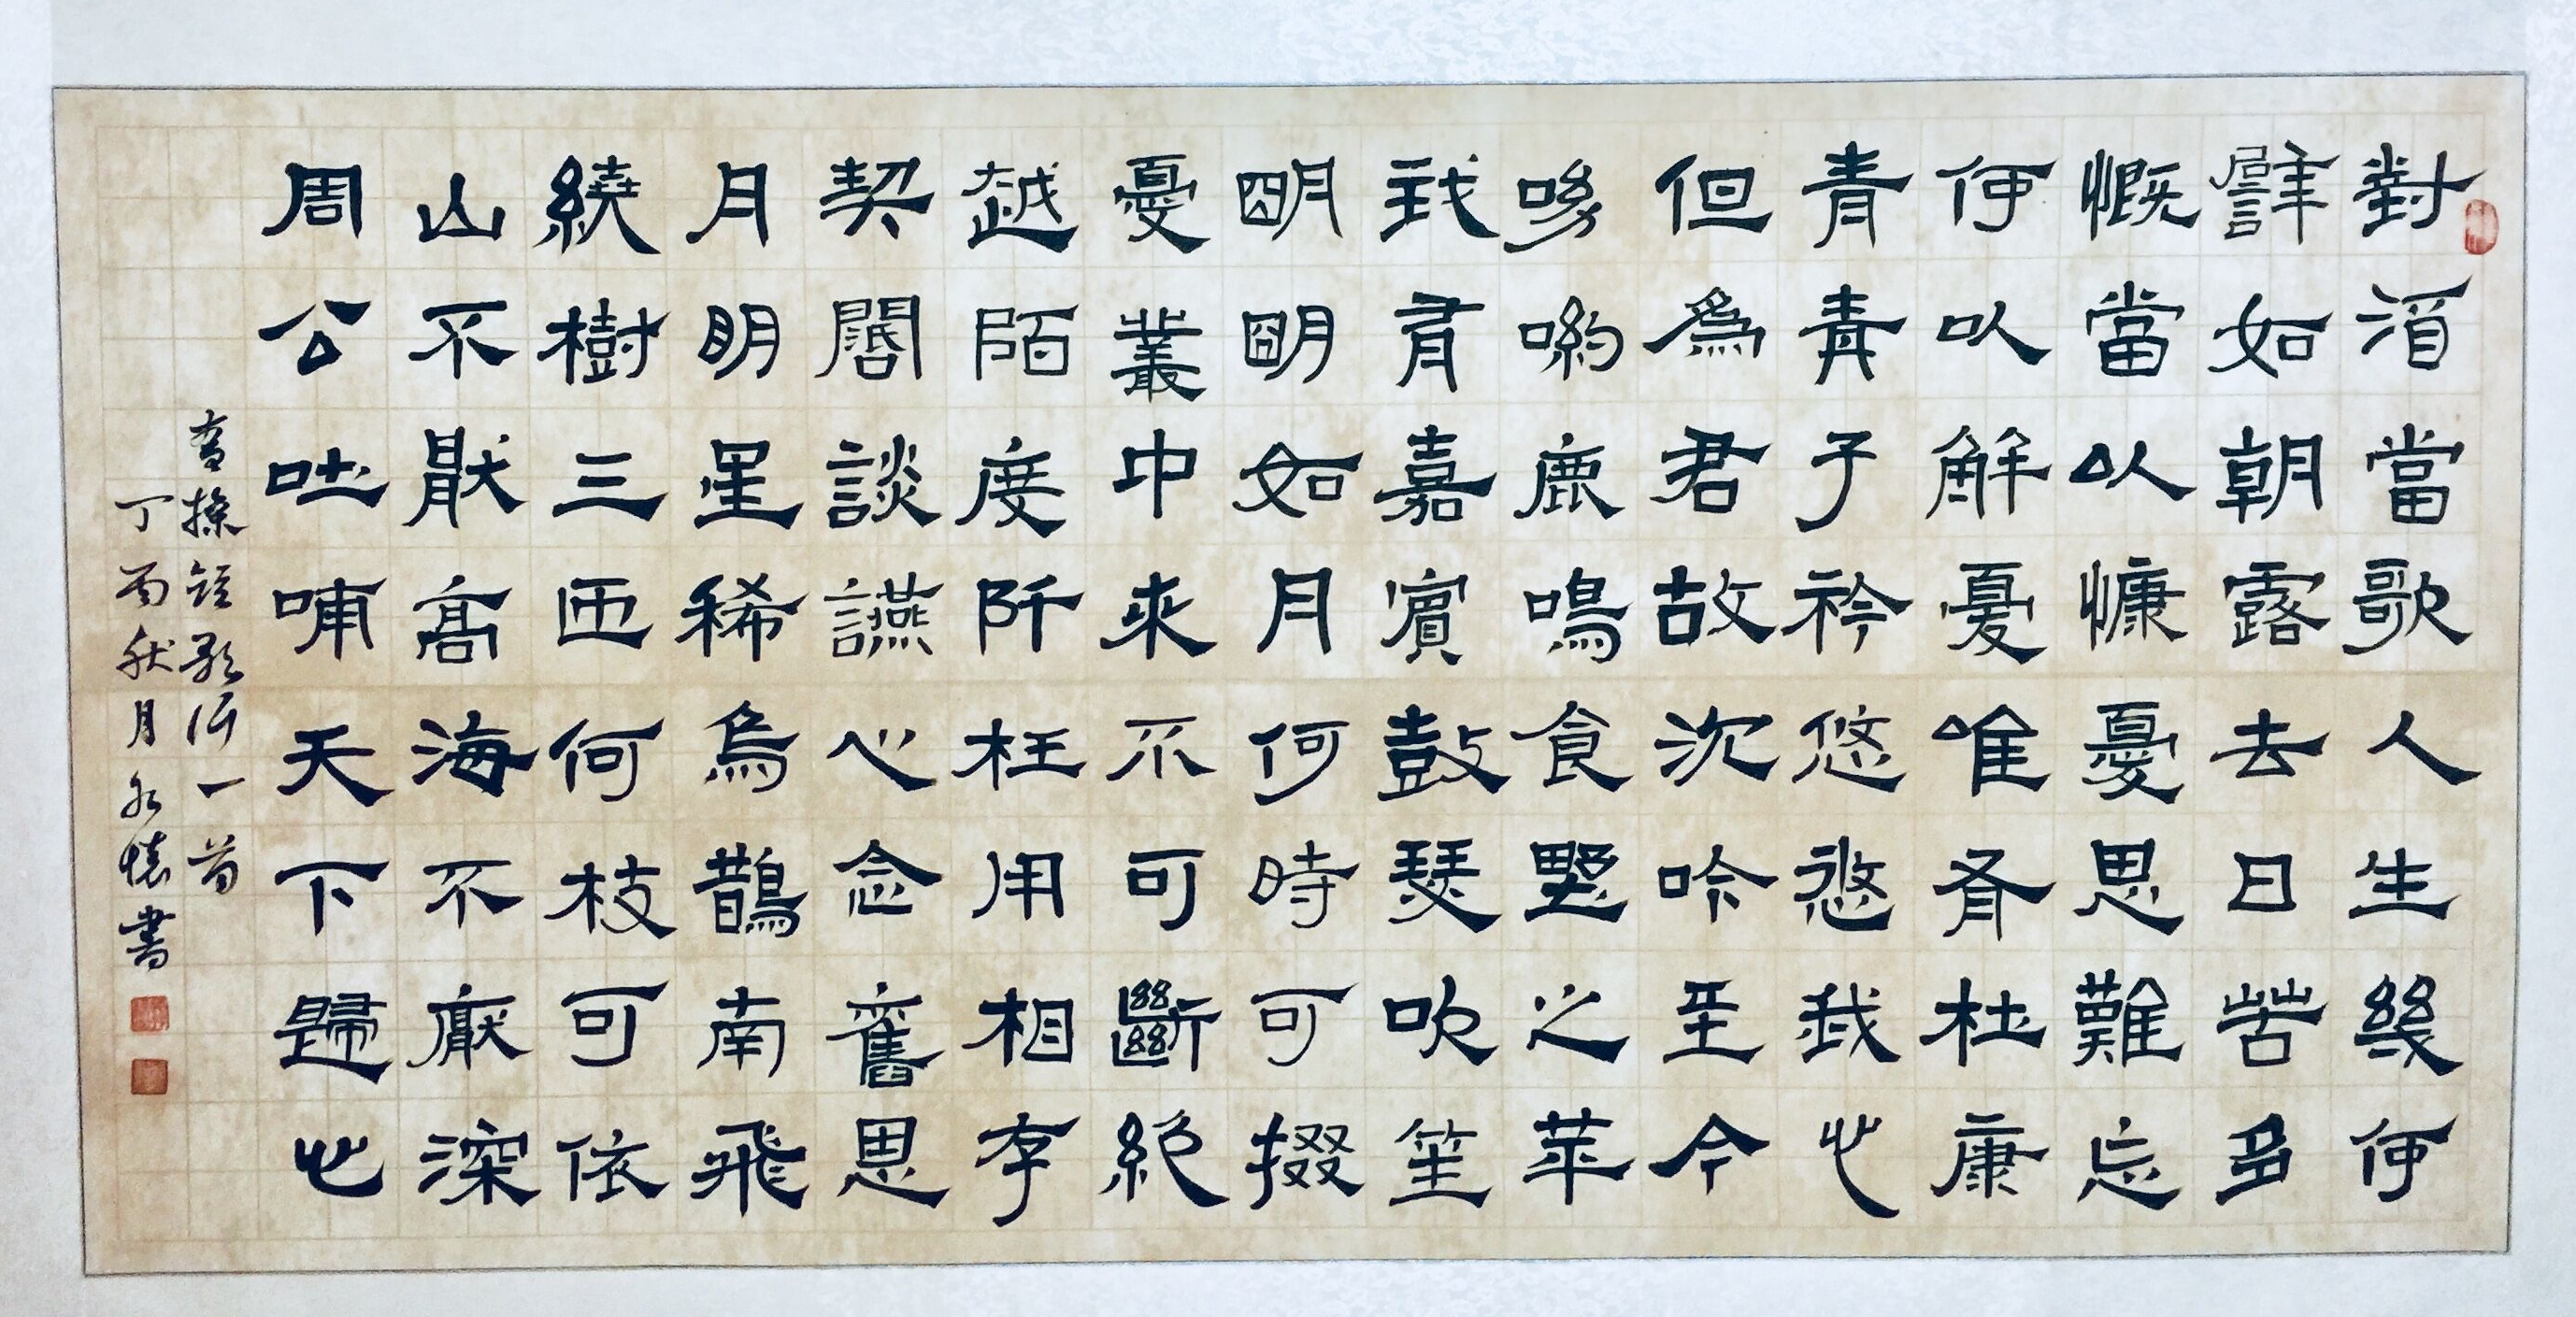 對酒當歌人生幾何
譬如朝露去日苦多
慨當以慷憂思難忘
何以解憂唯有杜康
青青子衿悠悠我心
但為君故沈吟至今
呦呦鹿鳴食野之苹
我有嘉賓鼓瑟吹笙
明明如月何時可掇
憂叢中來不可斷絕
越陌度阡枉用相存
契闊談讌心念舊恩
月明星稀烏鵲南飛
繞樹三匝何枝可依
山不厭高海不厭深
周公吐哺天下歸心
曹操短歌行一首
丁酉秋月永懷書